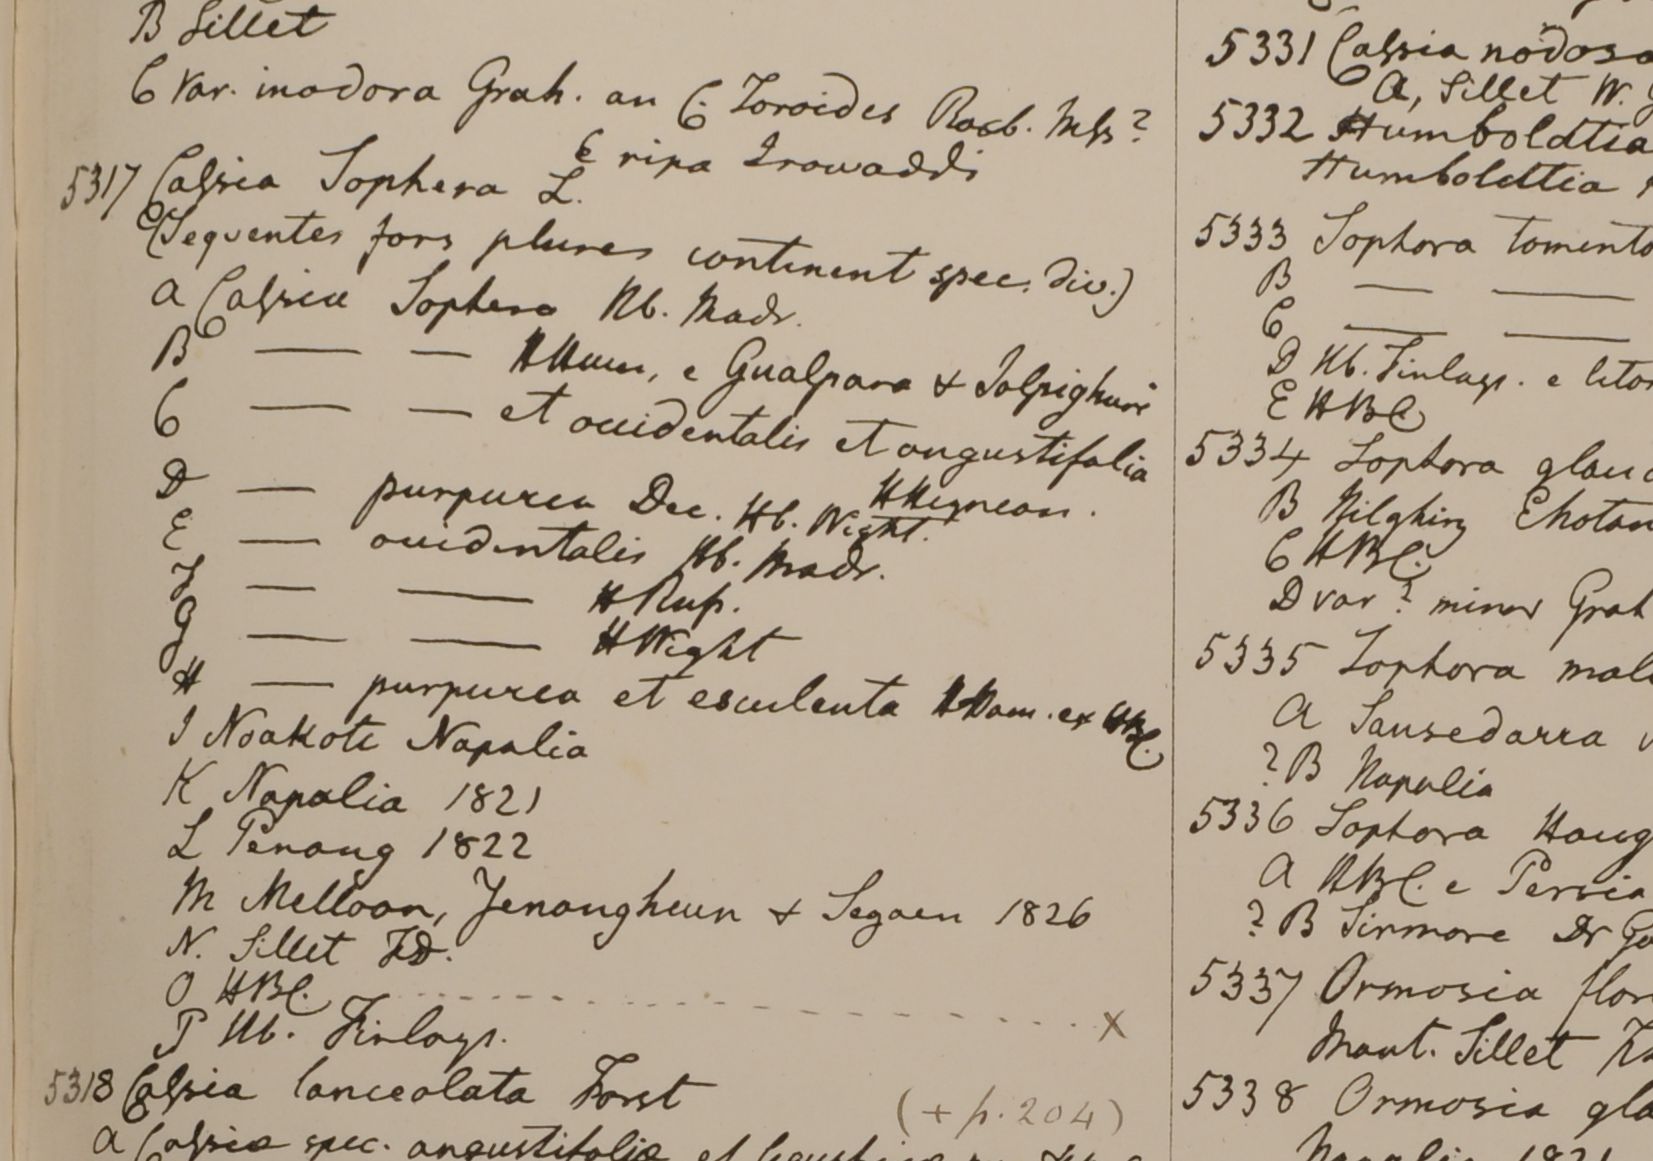 B Sillet
C Var. inodora Grah. an C. Toroides Roxb. Mss?
C ripa Irowaddi
5317 Cassia Sophera L.
(Sequentes fors plures continent spec. div.)
a Cassia Sophera Hb. Madr.
B — — HHam, e Gualpara & Jolpighuri
C — — et occidentalis et angustifolia
HHeyneau.
D — purpurea Dec. Hb. Wight.
E — occidentalis Hb. Madr.
F — — HRup.
G — — HWight
H — purpurea et esculenta HHam. ex HBC.
I Noakote Napalia
K Napalia 1821
L Penang 1822
M Melloon, Yenangheun & Segaen 1826
N. Sillet FD.
O HBC. X
P Hb. Finlays.
5318 Cassia lanceolata Forst
(+ p. 204)
a Cassia spec. angustifolia et
5331 Cassia nodosa
a, Sillet W.
5332 Humboldtia
Humboldttia
5333 Sophora tomento
B — —
C — —
D Hb. Finlays. e litor
E HBC
5334 Sophora glauc
B Nilghiry Ehotan
C HBC.
D var? minor Grah
5335 Sophora mol
a Sansedarra
? B Napalia
5336 Sophora Houg
a HBC. e Persia
? B Sirmore Dr Go
5337 Ormosia flor
Mont. Sillet
5338 Ormosia gla
Napalia 1821